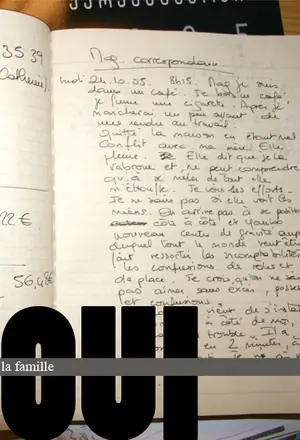 3539
22 €
56,48€
Mag. correspondance.
lundi 24.10.05. 8h15. Mag je suis
dans un café. Je bois un café
je fume une cigarete. Après je
marcherai un peu avant de
me rendre au travail.
Quitté la maison en étant en
conflit avec ma mère. Elle
pleure. Elle dit que je la
rabroue et ne peut comprendre
qu'à se mêler de tout elle
m'étouffe. Je vois ses efforts.
Je ne sais pas si elle voit les
miens. On arrive pas à se positionner
côte à côte et
nouveau centre de gravité
duquel tout le monde
fait ressortir les incompatibilités
les confusions de rôles et
de place. Je crois qu'on ne sait
pas aimer sans excès,
et confusions.
vient de s'
à côté de moi,
trouble. Il a
en 2 minutes, à
OUI
la famille